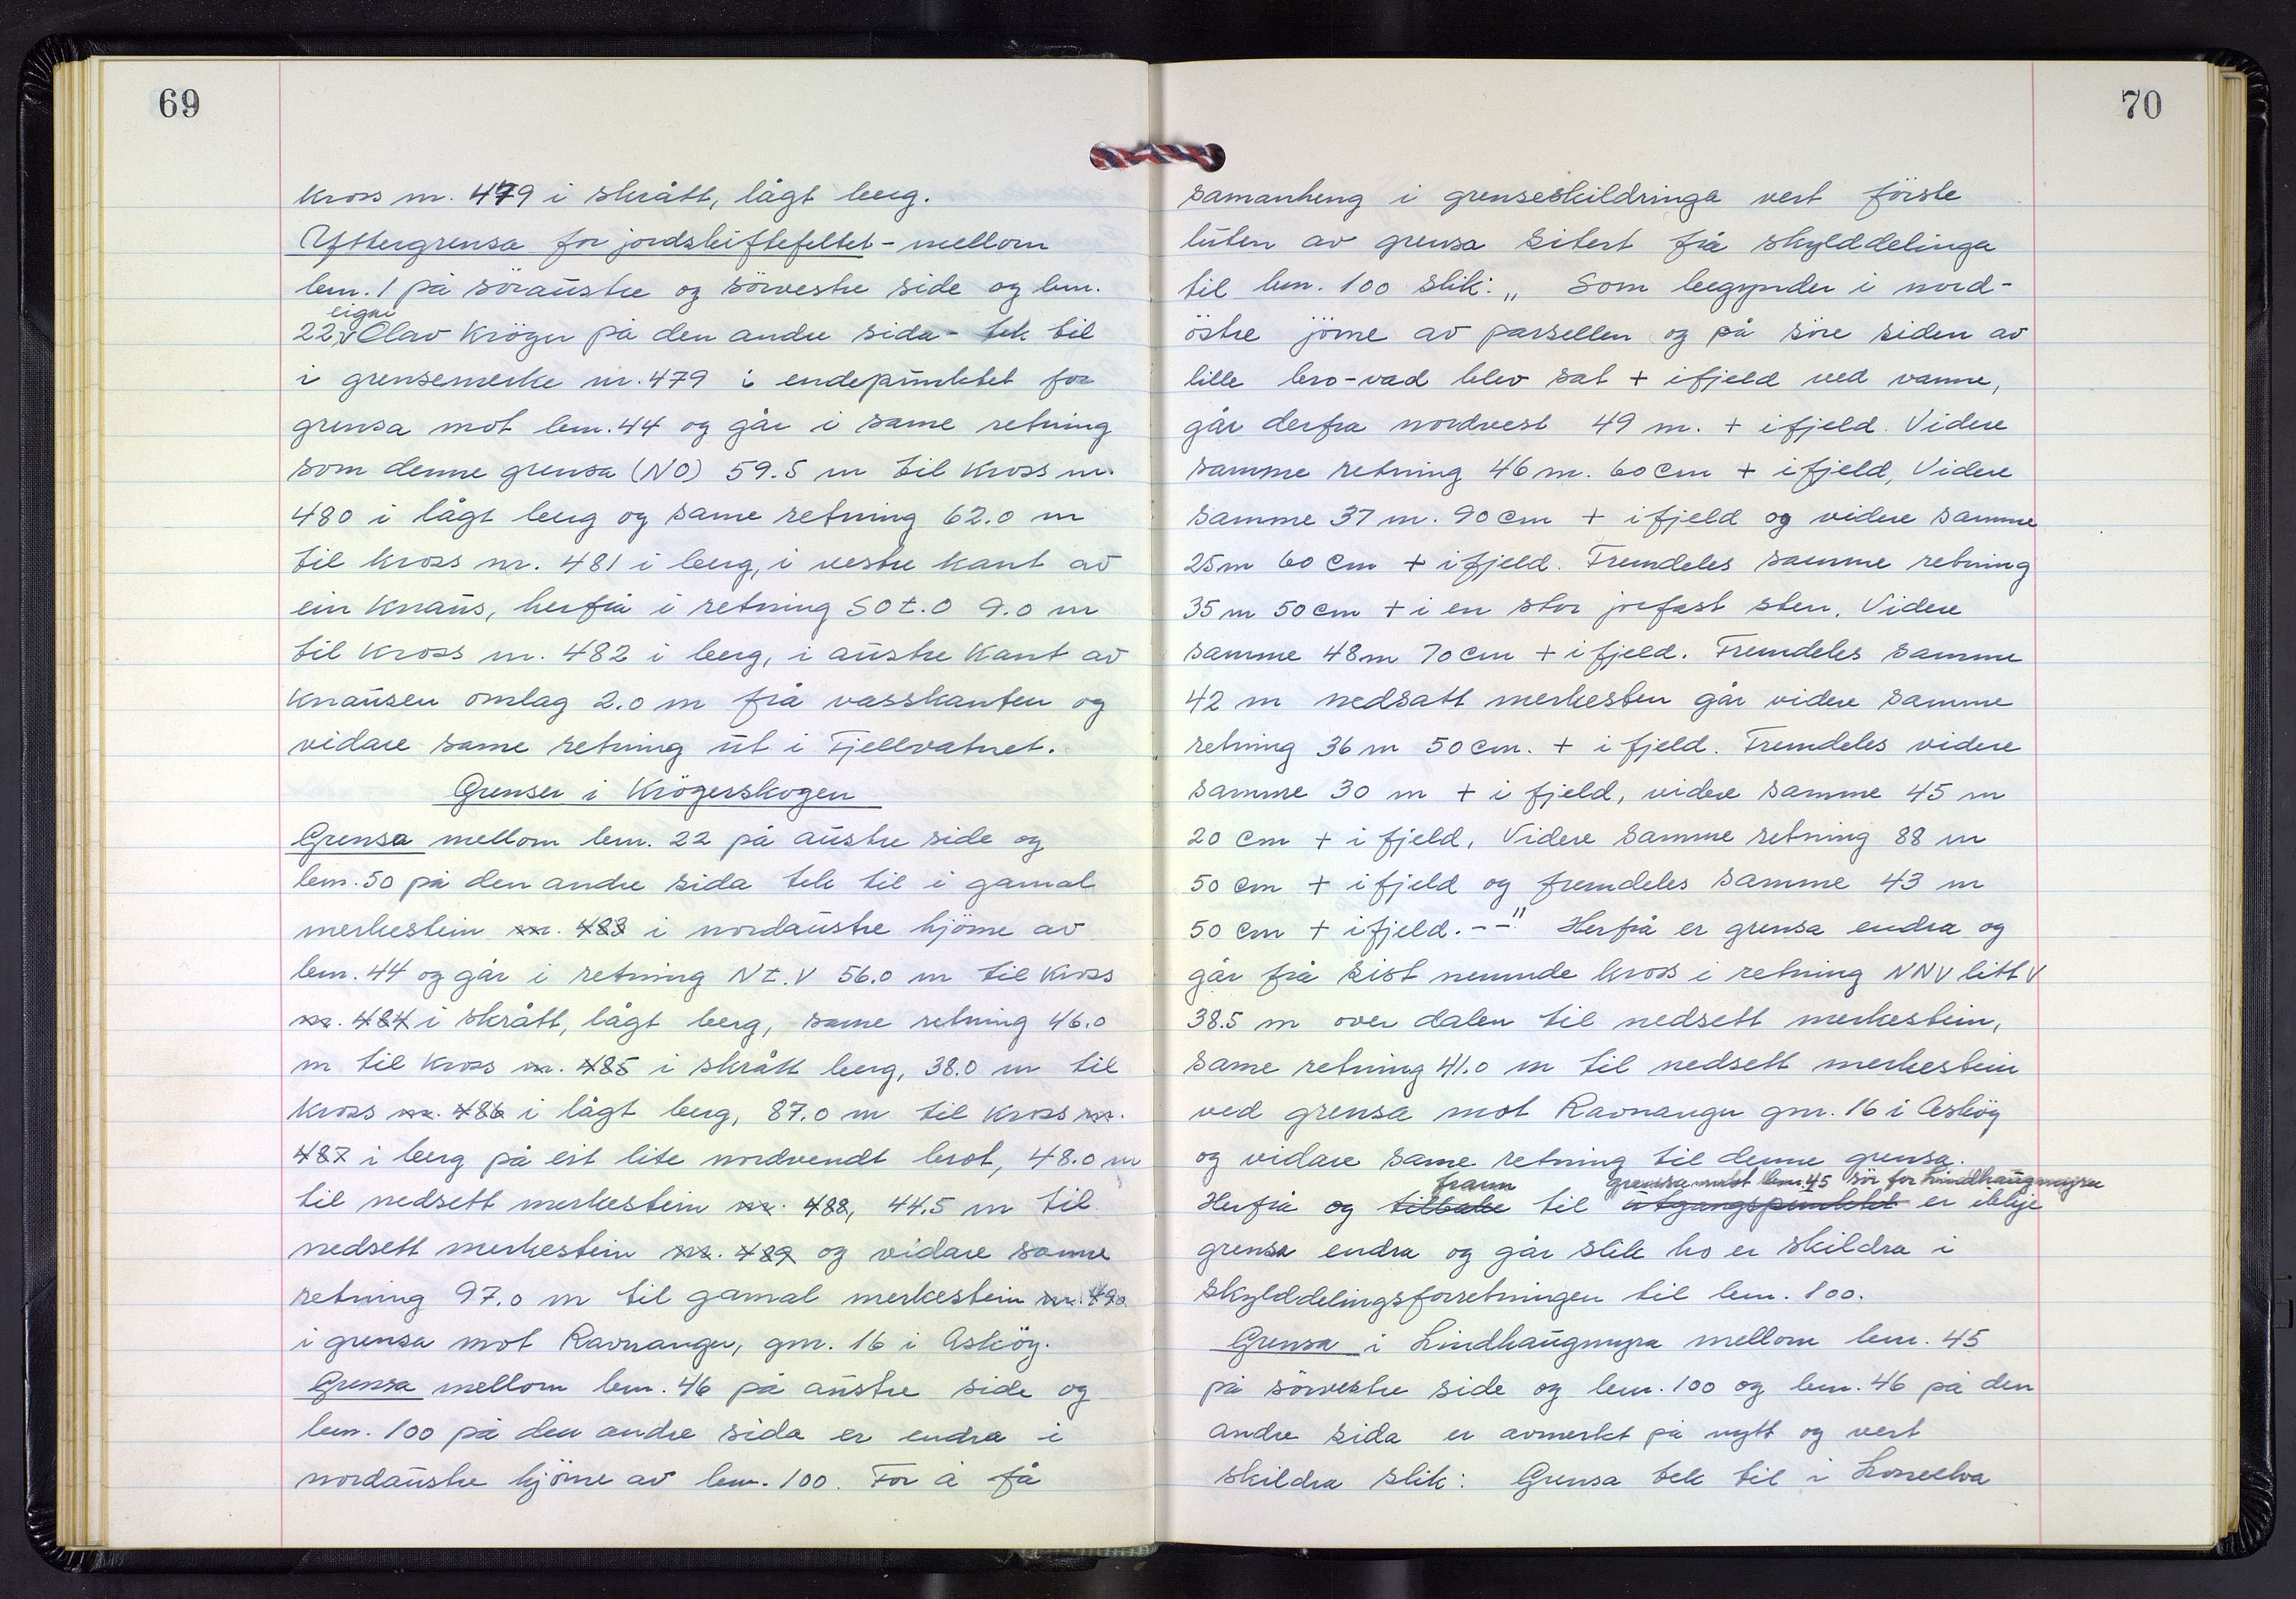 69
kross nr. 479 i skrått, lågt berg.
Yttergrensa for jordskiftefeltet - mellom
bnr. 1 på søraustre og sørvestre side og bnr.
eigar
22 v Olav Krøger på den andre sida - tek til
i grensemerke nr. 479 i endepunktet for
grensa mot bnr. 44 og går i same retning
som denne grensa (NO) 59.5 m til kross nr.
480 i lågt berg og same retning 62.0 m
til kross nr. 481 i berg, i vestre kant av
ein knaus, herfrå i retning SO t. O 9.0 m
til kross nr. 482 i berg, i austre kant av
knausen omlag 2.0 m frå vasskanten og
vidare same retning ut i Fjellvatnet.
Grenser i Krøgerskogen
Grensa mellom bnr. 22 på austre side og
bnr. 50 på den andre sida tek til i gamal
merkestein nr. 483 i nordaustre hjørne av
bnr. 44 og går i retning N t. V 56.0 m til kross
nr. 484 i skrått, lågt berg, same retning 46.0
m til kross nr. 485 i skrått berg, 38.0 m til
kross nr. 486 i lågt berg, 87.0 m til kross nr.
487 i berg på eit lite nordvendt brot, 48.0 m
til nedsett merkestein nr. 488, 44.5 m til
nedsett merkestein nr. 489 og vidare same
retning 97.0 m til gamal merkestein nr. 490
i grensa mot Ravnanger, gnr. 16 i Askøy.
Grensa mellom bnr. 46 på austre side og
bnr. 100 på den andre sida er endra i
nordaustre hjørne av bnr. 100. For å få
70
samanheng i grenseskildringa vert første
luten av grensa sitert frå skylddelinga
til bnr. 100 slik: „ Som begynder i nord-
østre jørne av parsellen og på søre siden av
lille bro-vad blev sat + i fjeld ved vanne,
går derfra nordvest 49 m. + i fjeld. Videre
samme retning 46 m. 60 cm + i fjeld, Videre
samme 37 m. 90 cm + i fjeld og videre samme
25 m 60 cm + i fjeld. Fremdeles samme retning
35 m 50 cm + i en stor jorfast sten. Videre
samme 48 m 70 cm + i fjeld. Fremdeles samme
42 m nedsatt merkesten går videre samme
retning 36 m 50 cm. + i fjeld. Fremdeles videre
samme 30 m + i fjeld, videre samme 45 m
20 cm + i fjeld, Videre samme retning 88 m
50 cm + i fjeld og fremdeles samme 43 m
50 cm + i fjeld. - - " Herfrå er grensa endra og
går frå sist nemnde kross i retning NNV litt V
38.5 m over dalen til nedsett merkestein,
same retning 41.0 m til nedsett merkestein
ved grensa mot Ravnanger gnr. 16 i Askøy
og vidare same retning til denne grensa.
fram grensa mot bnr. 45 sør for Lindhaugmyra
Herfrå og tilbake til utgangspunktet er ikkje
grensa endra og går slik ho er skildra i
skylddelingsforretningen til bnr. 100.
Grensa i Lindhaugmyra mellom bnr. 45
på sørvestre side og bnr. 100 og bnr. 46 på den
andre sida er avmerkt på nytt og vert
skildra slik: Grensa tek til i Loneelva